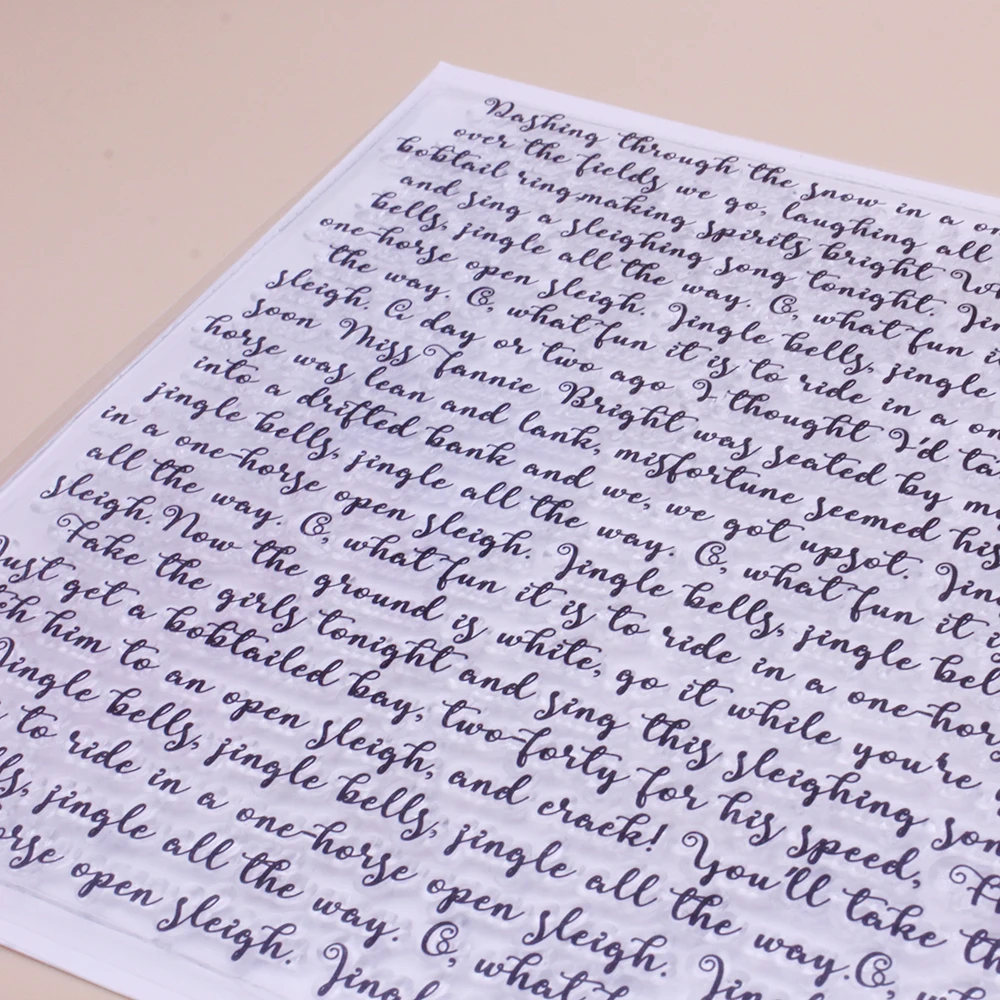 Dashing through the snow in a on
over the fields we go, laughing all
bobtail ring,making spirits bright Wh
and sing a sleighing song tonight. Jin
bells, jingle all the way. O, what fun it
one-horse open sleigh. Jingle bells, jingle
the way. O, what fun it is to ride in a on
sleigh. A day or two ago I thought I'd ta
soon Miss Fannie Bright was seated by m
horse was lean and lank, misfortune seemed his
into a drifted bank and we, we got upsot. Jin
jingle bells, jingle all the way. O, what fun it i
in a one-horse open sleigh. Jingle bells, jingle bel
all the way. O, what fun it is to ride in a one-hors
sleigh. Now the ground is white, go it while you're
Take the girls tonight and sing this sleighing son
Just get a bobtailed bay, two-forty for his speed,
tch him to an open sleigh, and crack! You'll take th
Jingle bells, jingle bells, jingle all the way. O,
to ride in a one-horse open sleigh. Jin
ls, jingle all the way. O, what
orse open sleigh. Jingl